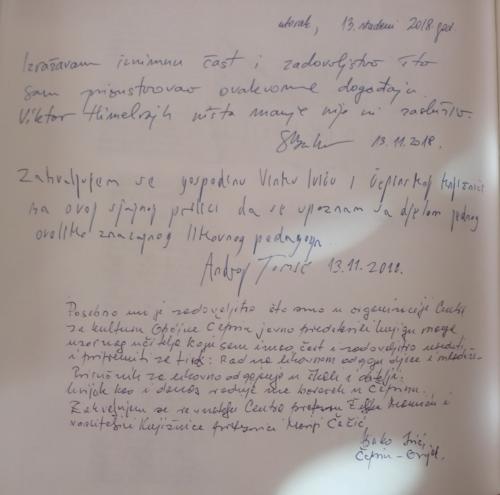 utorak, 13. studeni 2018. god.
Izražavam iznimnu čast i zadovoljstvo što
sam prisustvovao ovakvome događaju.
Viktor Himelrajh ništa manje nije ni zaslužio.
13.11.2018.
Zahvaljujem se gospodinu Vinku Iviću i Čepinskoj knjižnici
na ovoj sjajnoj prilici da se upoznam sa djelom jednog
ovoliko značajnog likovnog pedagoga.
Andrej Tomić 13.11.2018.
Posebno mi je zadovoljstvo što smo u organizaciji Centra
za kulturu Općine Čepin javno predstavili knjigu moga
uzornog učitelja kojeg sam imao čast i zadovoljstvo
i pripremiti za tisak: Rad na likovnom odgoju djece i mladeži.
Priručnik za likovno odgajanje u školi i obitelji.
Uvijek kao i danas raduje me boravak u Čepinu.
Zahvaljujem se ravnatelju Centra
voditeljici Knjižnice profesorici Mariji
Vinko Ivić,
Čepin - Osijek.